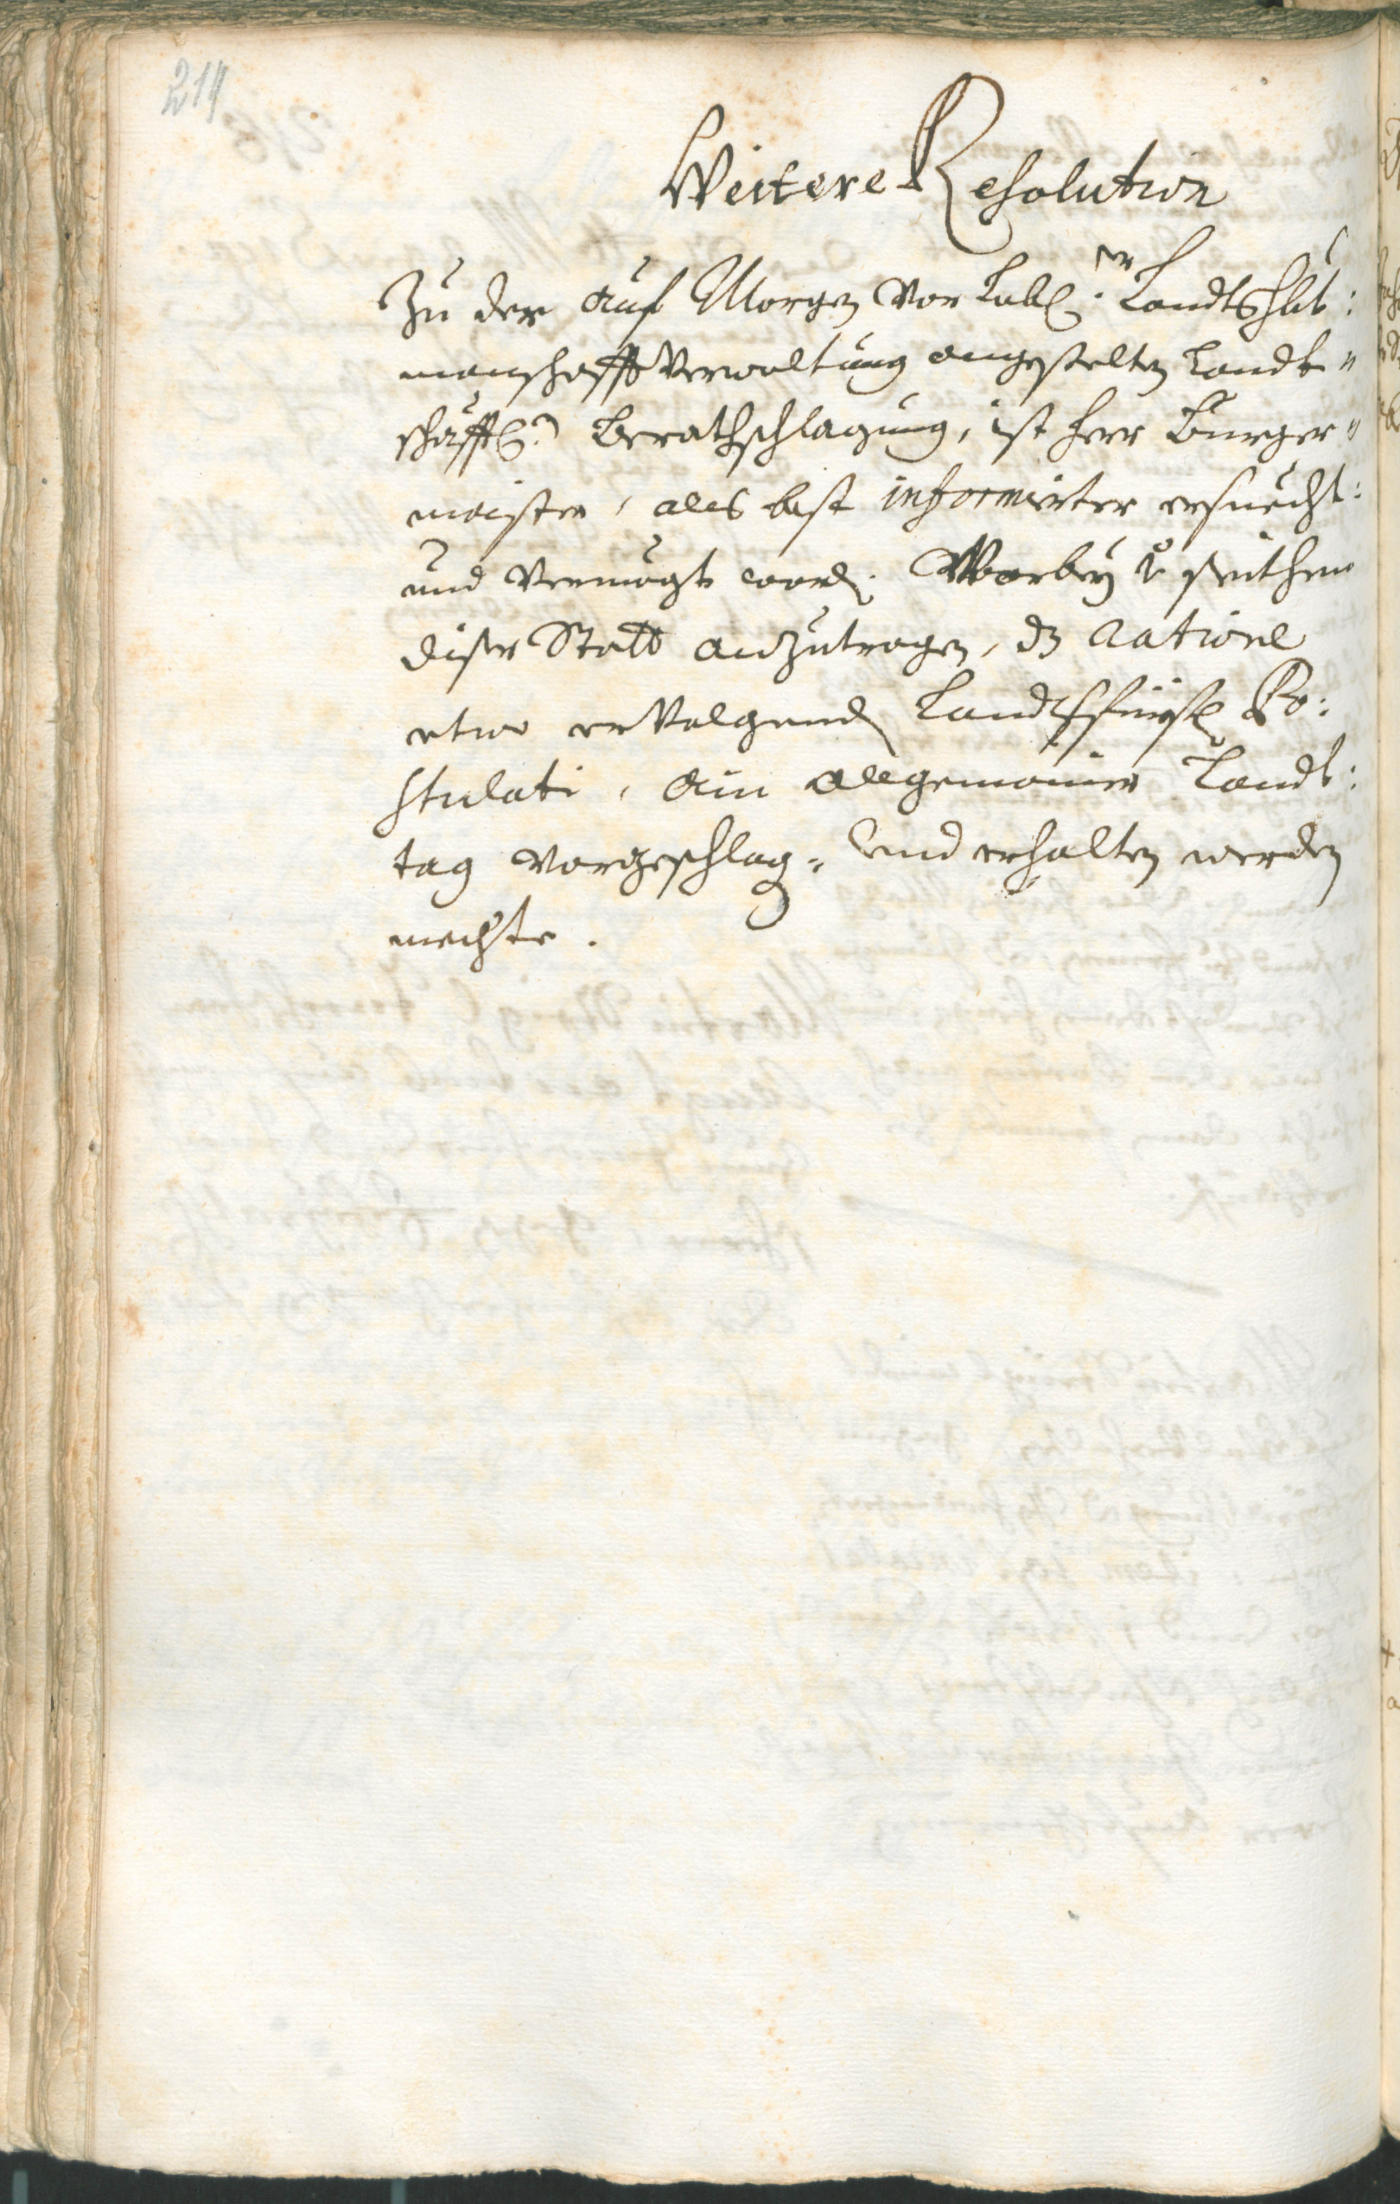 214
Weitere Resolution
Zu der auf Morgen von Lobl: er Landtshaubt:
manschafft Verwaltung angestelten Landt=
schafftl: Berathschlagung, ist herr Burger=
maister, als best informirter ersuecht:
und vermögt word. Warbey seithen
diser Statt anzutragen, dz ratione
etwo ervolgend Landtsfürstl: Po:
stulati, ain allgemainer Landt:
tag vorgeschlag= und erhalten werden
mechte.